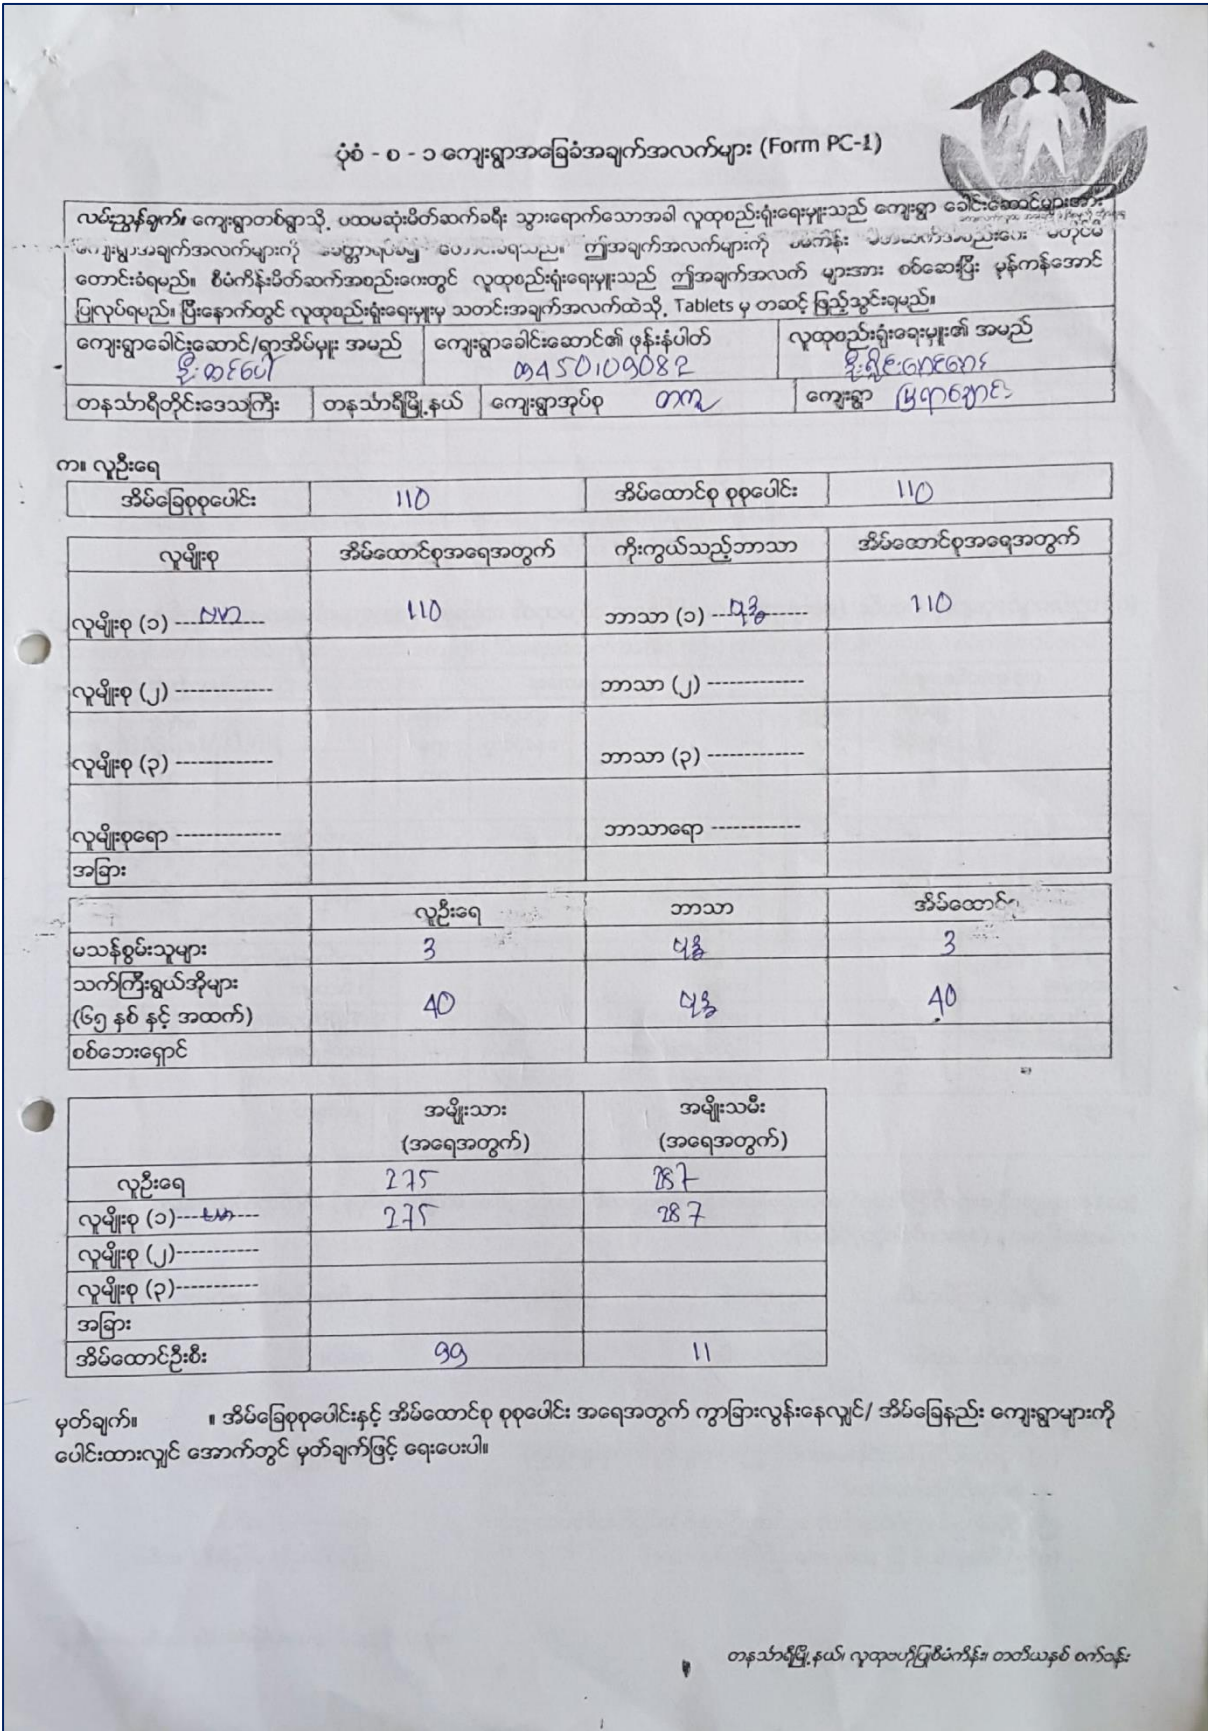 ပုံစံ - စ - ၁ ကျေးရွာအခြေခံအချက်အလက်များ (Form PC-1)
လမ်းညွှန်ချက်။ ကျေးရွာတစ်ရွာသို့ ပထမဆုံးမိတ်ဆက်ခရီး သွားရောက်သောအခါ လူထုစည်းရုံးရေးမှူးသည် ကျေးရွာ ခေါင်းဆောင်များအား
ကျေးရွာအချက်အလက်များကို ဤအချက်အလက်များကို
တောင်းခံရမည်။ စီမံကိန်းမိတ်ဆက်အစည်းဝေးတွင် လူထုစည်းရုံးရေးမှူးသည် ဤအချက်အလက် များအား စစ်ဆေးပြီး မှန်ကန်အောင်
ပြုလုပ်ရမည်။ ပြီးနောက်တွင် လူထုစည်းရုံးရေးမှူးမှ သတင်းအချက်အလက်ထဲသို့ Tablets မှ တဆင့် ဖြည့်သွင်းရမည်။
ကျေးရွာခေါင်းဆောင်/ရာအိမ်မှူး အမည် ကျေးရွာခေါင်းဆောင်၏ ဖုန်းနံပါတ် လူထုစည်းရုံးရေးမှူး၏ အမည်
09450109082
တနင်္သာရီတိုင်းဒေသကြီး တနင်္သာရီမြို့နယ် ကျေးရွာအုပ်စု တကူ ကျေးရွာ
က။ လူဦးရေ
အိမ်ခြေစုစုပေါင်း 110 အိမ်ထောင်စု စုစုပေါင်း 110
လူမျိုးစု အိမ်ထောင်စုအရေအတွက် ကိုးကွယ်သည့်ဘာသာ အိမ်ထောင်စုအရေအတွက်
လူမျိုးစု (၁) ဗမာ 110 ဘာသာ (၁) ဗုဒ္ဓ 110
လူမျိုးစု (၂) ------------- ဘာသာ (၂) -------------
လူမျိုးစု (၃) ------------- ဘာသာ (၃) -------------
လူမျိုးစုရော -------------- ဘာသာရော ------------
အခြား
လူဦးရေ ဘာသာ အိမ်ထောင်စု
မသန်စွမ်းသူများ 3 ဗုဒ္ဓ 3
သက်ကြီးရွယ်အိုများ
(၆၅ နှစ် နှင့် အထက်) 40 ဗုဒ္ဓ 40
စစ်ဘေးရှောင်
အမျိုးသား အမျိုးသမီး
(အရေအတွက်) (အရေအတွက်)
လူဦးရေ 275 287
လူမျိုးစု (၁) ဗမာ 275 287
လူမျိုးစု (၂)-----------
လူမျိုးစု (၃)-----------
အခြား
အိမ်ထောင်ဦးစီး 99 11
မှတ်ချက်။ ။ အိမ်ခြေစုစုပေါင်းနှင့် အိမ်ထောင်စု စုစုပေါင်း အရေအတွက် ကွာခြားလွန်းနေလျှင်/ အိမ်ခြေနည်း ကျေးရွာများကို
ပေါင်းထားလျှင် အောက်တွင် မှတ်ချက်ဖြင့် ရေးပေးပါ။
တနင်္သာရီမြို့နယ်၊ လူထုဗဟိုပြုစီမံကိန်း၊ တတိယနှစ် စက်ဝန်း